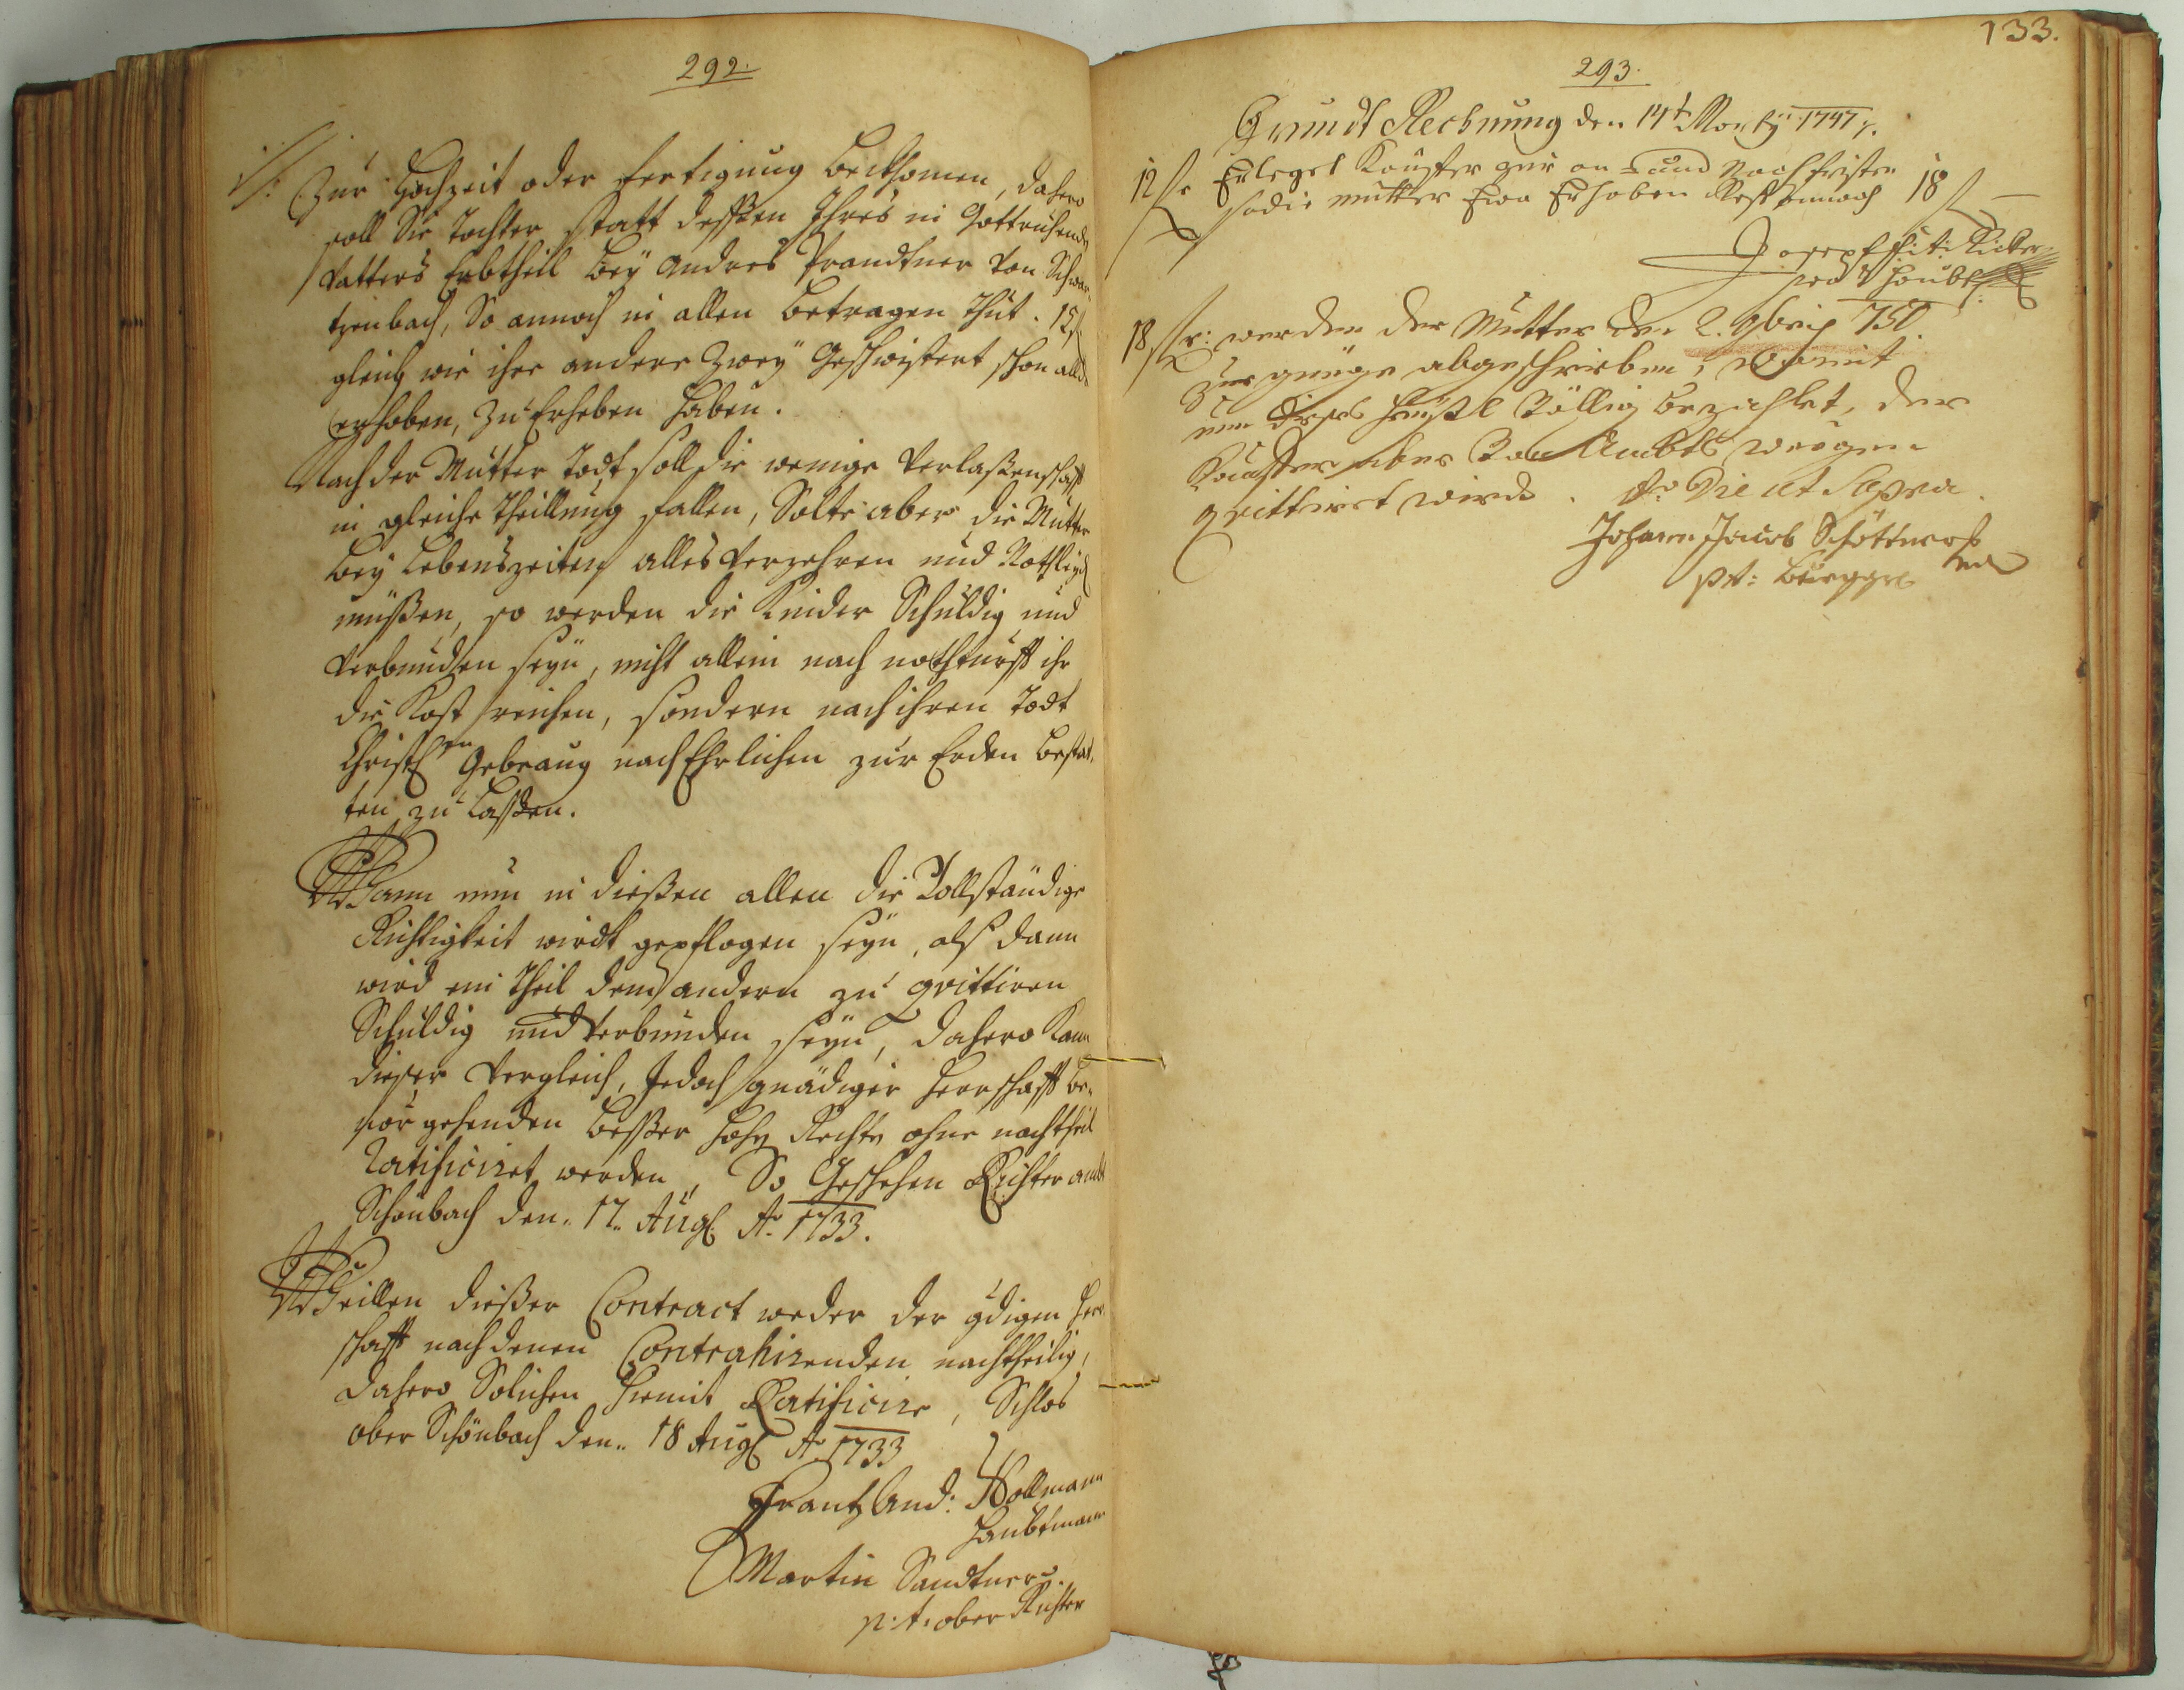 292.
//: Zur Hochzeit oder fertigung bekhomen, dahero
soll die Tochter statt dessen Ihres in Gottruhenden
Vatters Erbtheil bey Andres Prandtner von Schwar-
tzenbach, So annoch in allen betragen thut. 15 f
gleich wie ihre andere zwey Geschwistert schon alle
erhoben, zu Erheben haben.
Nach der Mutter Todt soll die wenige Verlassenschafft
in gleiche theillung fallen, Solte aber die Mutter
bey Lebenszeiten alles verzehren und Nothleyd
müssen, so werden die Kinder Schuldig und
verbunden seyn, nicht allein nach nothturfft ihr
die Kost reichen, sondern nach ihren Todt
Christl:en Gebraug nach Ehrlichen zur Erden bestat-
ten zu lassen.
Wann nun in diessen allen die Vollständige
Richtigkeit wirdt gepflogen seyn, alss dann
wird ein Theil dem andern zu quittiren
Schuldig und verbunden seyn, dahero kann
dieser Vergleich, Jedoch gnädiger Herrschafft be-
vor gehenden besser Hohen Rechte ohne nachtheil
Ratificiret werden, So Geschehen Richter ambt
Schönbach den 17. Aug: Ao 1733.
Weillen diesser Contract weder der gdigen Herr
schafft nach denen Contrahirenden nachtheilig,
dahero Solichen hiemit Ratificire, Schlos
ober Schönbach den 18 Aug: Ao 1733
Frantz And: Hollmann
Haubtmann
Martin Sandtner
p: t: ober Richter
133.
293.
Grundt Rechnung den 14t Marty 1747.
12 f Erleget Kauffer zur an und Nachfristen
so die Mutter Eva Erhoben Rest annoch 18 f –
Joseph
18 f werden der Mutter den 2. 9bris 750
zur genüge abgeschrieben, womit
nun dieses Heussl Völlig bezahlet, der
Kauffer aber von Ambts weegen
quittiret wirdt. Ao Die ut Supra.
Johann Jacob Schöttner
pt: Burggr